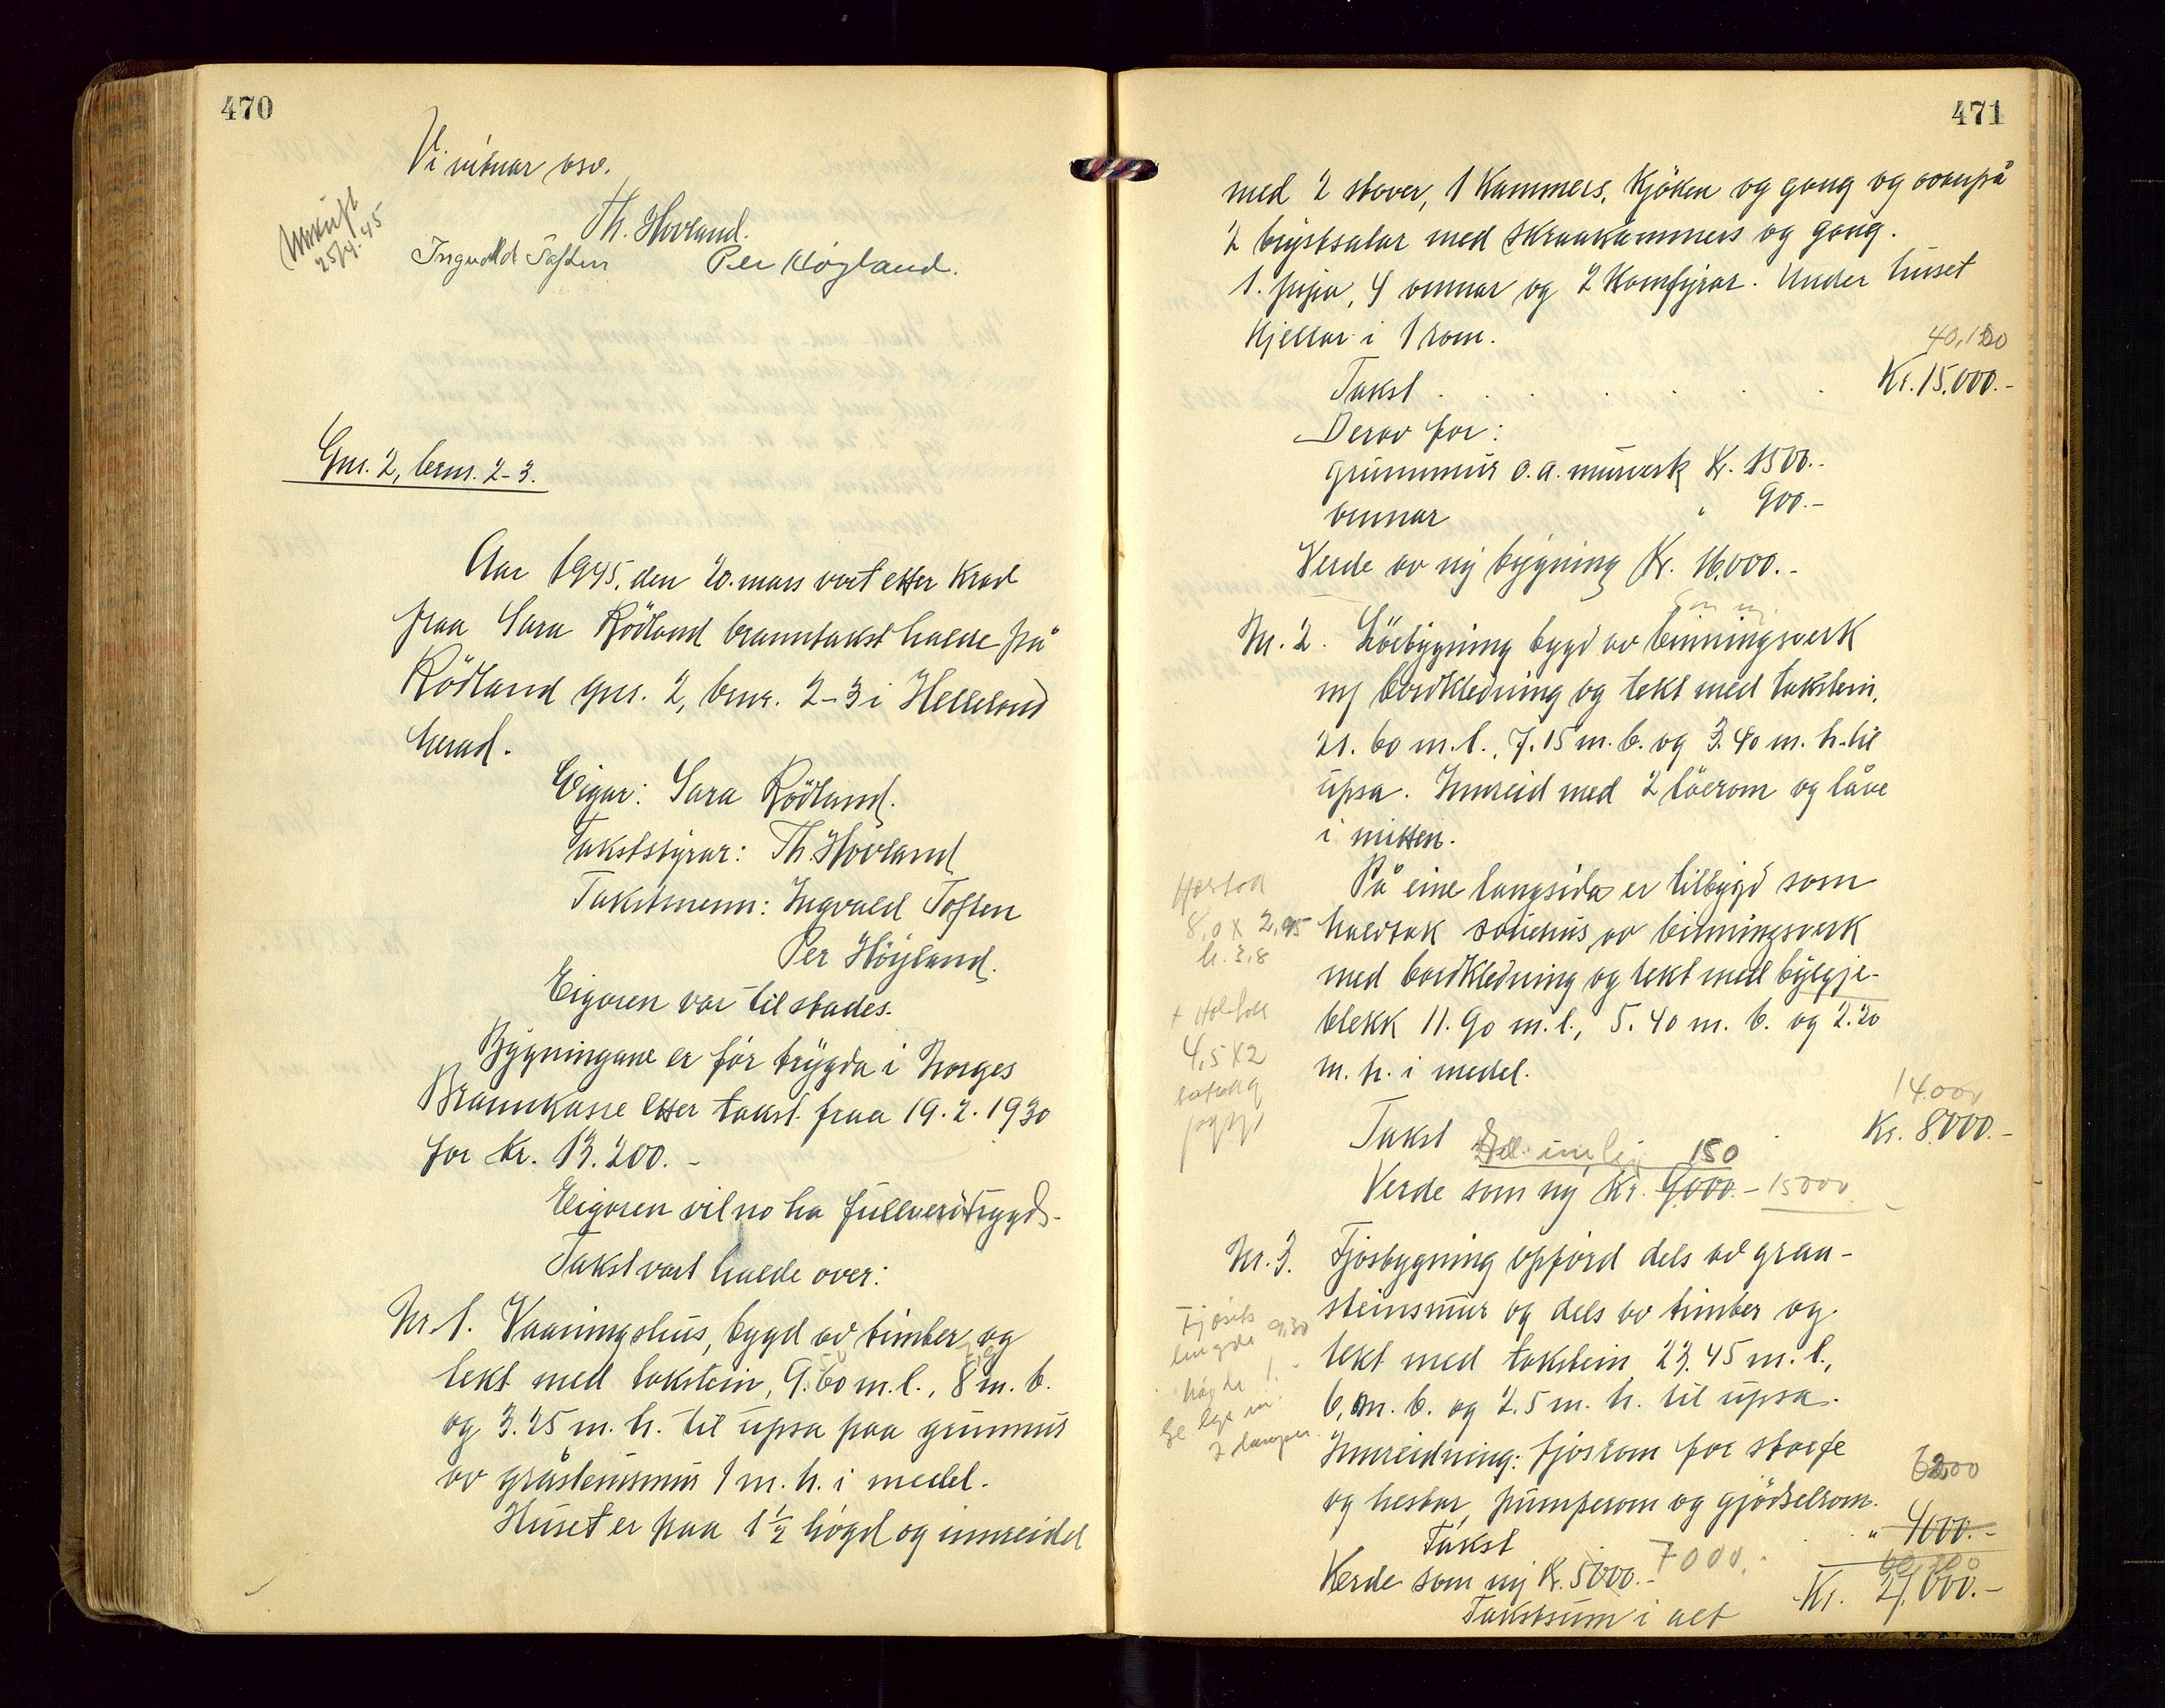 470
Vi vitnar osv.
Utskrift
25/4.45
Th. Hovland.
Ingvald Toften Per Högland.
Gnr. 2, brnr. 2-3.
Aar 1945, den 20. mars vart etter krav
fraa Sara Rödland branntakst halde på
Rödland gnr. 2, bnr. 2-3 i Helleland
herad.
Eigar: Sara Rödland.
Takststyrar: Th. Hovland
Takstmenn: Ingvald Toften
Per Högland.
Eigaren var til stades.
Bygningane er för trygda i Norges
Brannkasse etter takst fraa 19.2.1930
for kr. 13.200.-
Eigaren vil no ha fullverdtrygd.
Takst vart halde over:
Nr. 1. Vaaningshus, bygd av timber og
tekt med takstein, 9.60 m.l., 8 m. b.
og 3.25 m. h. til upsa paa grunmur
av gråsteinsmur 1 m. h. i medel.
Huset er paa 1 1/2 högd og innreidd
471
med 2 stover, 1 kammers, kjöken og gang og ovanpå
2 brystsalar med skraakammers og gang.
1. pipa, 4 omnar og 2 komfyrar. Under huset
kjellar i 1 rom.
40,100
Takst Kr. 15.000.-
Derav for:
grunnmur o.a. murverk Kr. 1500.-
omnar " 900.-
Verde av ny bygning Kr. 16.000.-
Nr. 2. Löebygning bygd av binningsverk
m/ bordkledning og tekt med takstein,
21.60 m.l., 7.15 m. b. og 3.40 m. h. til
upsa. Innreid med 2 löerom og låve
i mitten.
På eine langsida er tilbygd som
halvtak sauehus av binningsverk
med bordkledning og tekt med bylgje-
blekk 11.90 m.l., 5.40 m. b. og 2.20
m. h. i medel.
8,0 x 2,95
h. 3,8
4,5 x 2
14000
Takst Kr. 8000.-
150
Verde som ny Kr. 9000.- 15000
Nr. 3. Fjösbygning oppförd dels av graa-
steinsmur og dels av timber og
tekt med takstein 23.45 m.l.,
6, m. b. og 2.5 m. h. til upsa.
Innreidning: fjösrom for storfe
og hestar, pumperom og gjödselrom.
Fjösets
lengde 9,30
högde
2 lamper
6200
Takst " 4000.-
Verde som ny Kr. 5000.- 7000.-
Takstsum i alt Kr. 27.000.-